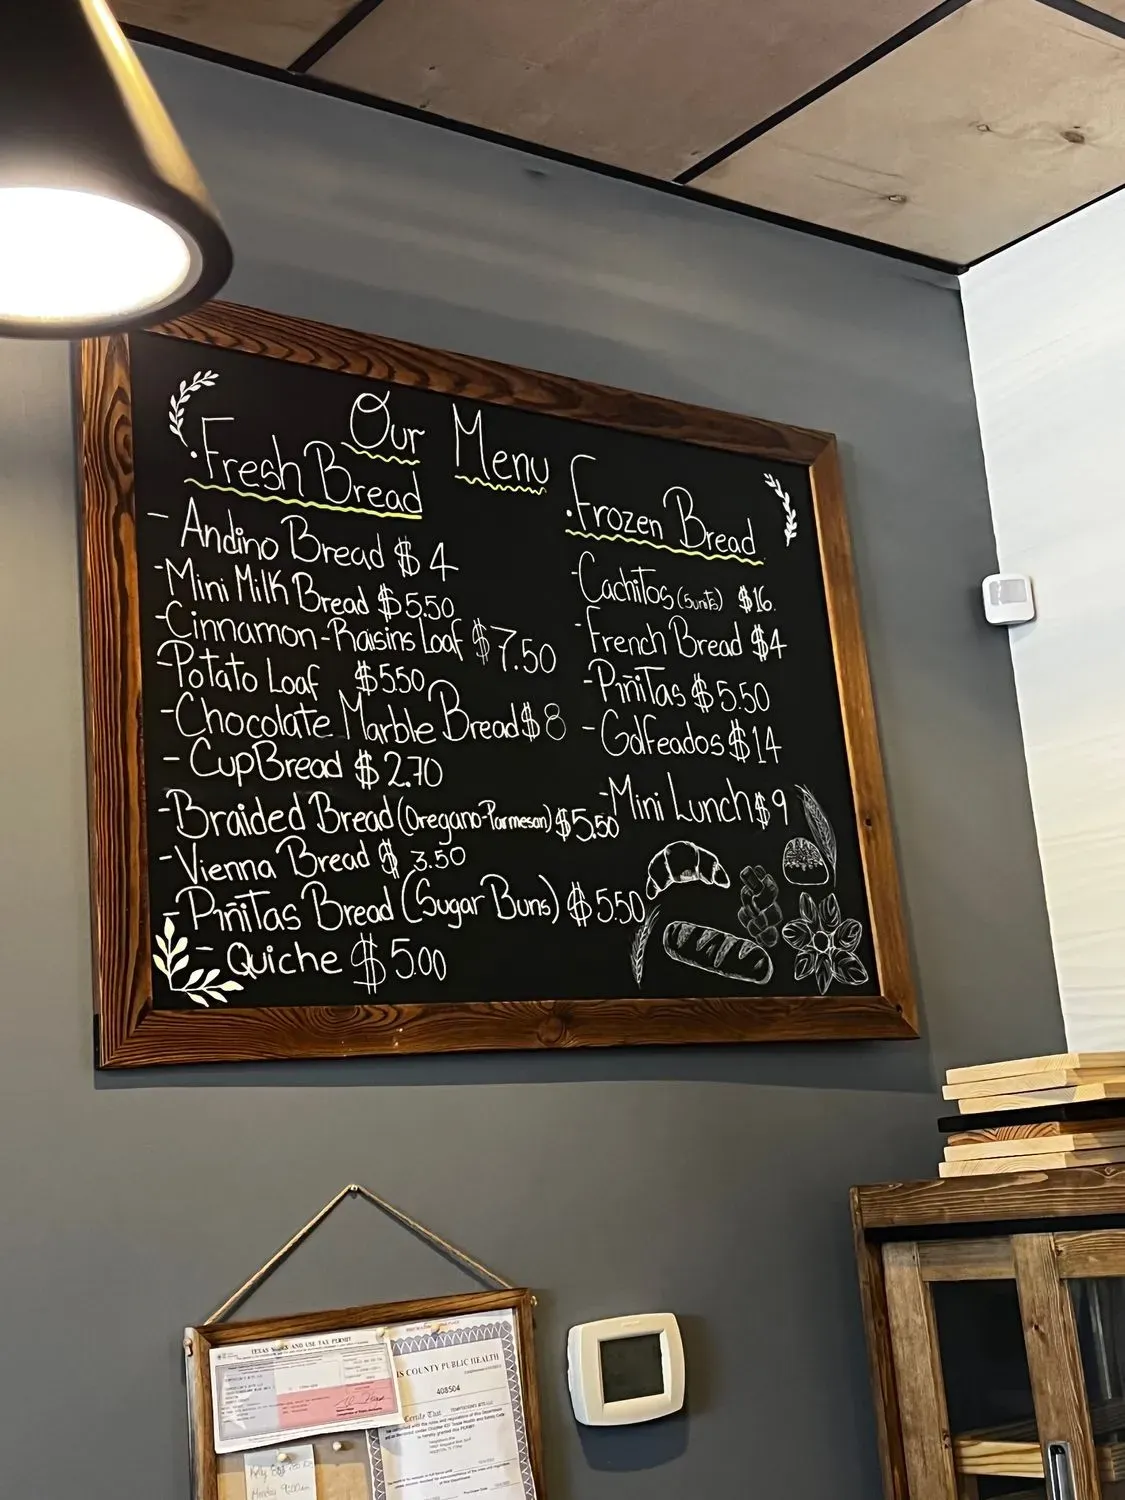 Our Menu
.Fresh Bread
- Andino Bread $4
-Mini Milk Bread $5.50
-Cinnamon-Raisins Loaf $7.50
-Potato Loaf $5.50
-Chocolate Marble Bread $8
- Cup Bread $2.70
-Braided Bread (Oregano-Parmesan) $5.50
-Vienna Bread $3.50
- Piñitas Bread (Sugar Buns) $5.50
- Quiche $5.00
.Frozen Bread
-Cachitos (5units) $16.
-French Bread $4
-Piñitas $5.50
-Golfeados $14
-Mini Lunch $9
TEXAS SALES AND USE TAX PERMIT
IS COUNTY PUBLIC HEALTH
408504
Certify That
Monday 9:00am